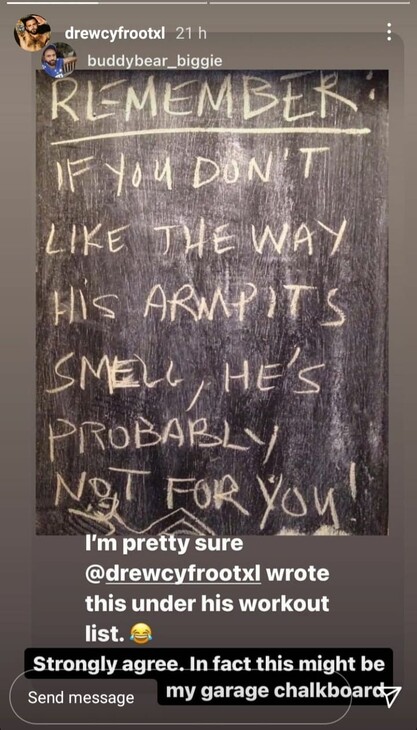 drewcyfrootxl 21 h
buddybear_biggie
REMEMBER:
IF YOU DON'T
LIKE THE WAY
HIS ARMPITS
SMELL, HE'S
PROBABLY
NOT FOR YOU!
I'm pretty sure
@drewcyfrootxl wrote
this under his workout
list. 😂
Strongly agree. In fact this might be
my garage chalkboard
Send message